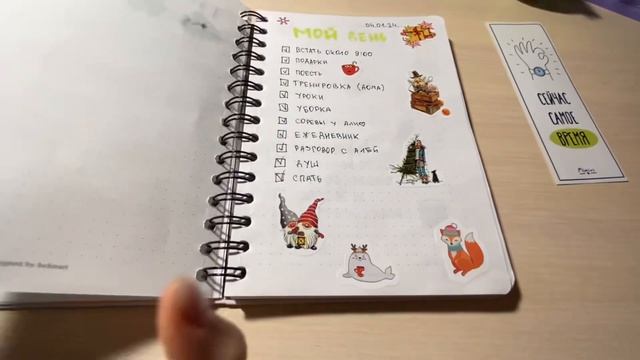 04.01.24.
МОЙ ДЕНЬ
ВСТАТЬ ОКОЛО 9:00
ПОДАРКИ
ПОЕСТЬ
ТРЕНИРОВКА (ДОМА)
УРОКИ
УБОРКА
СОРЕВЫ У АЛИСЫ
ЕЖЕДНЕВНИК
РАЗГОВОР С АЛЕЙ
ДУШ
СПАТЬ
СЕЙЧАС
САМОЕ
ВРЕМЯ